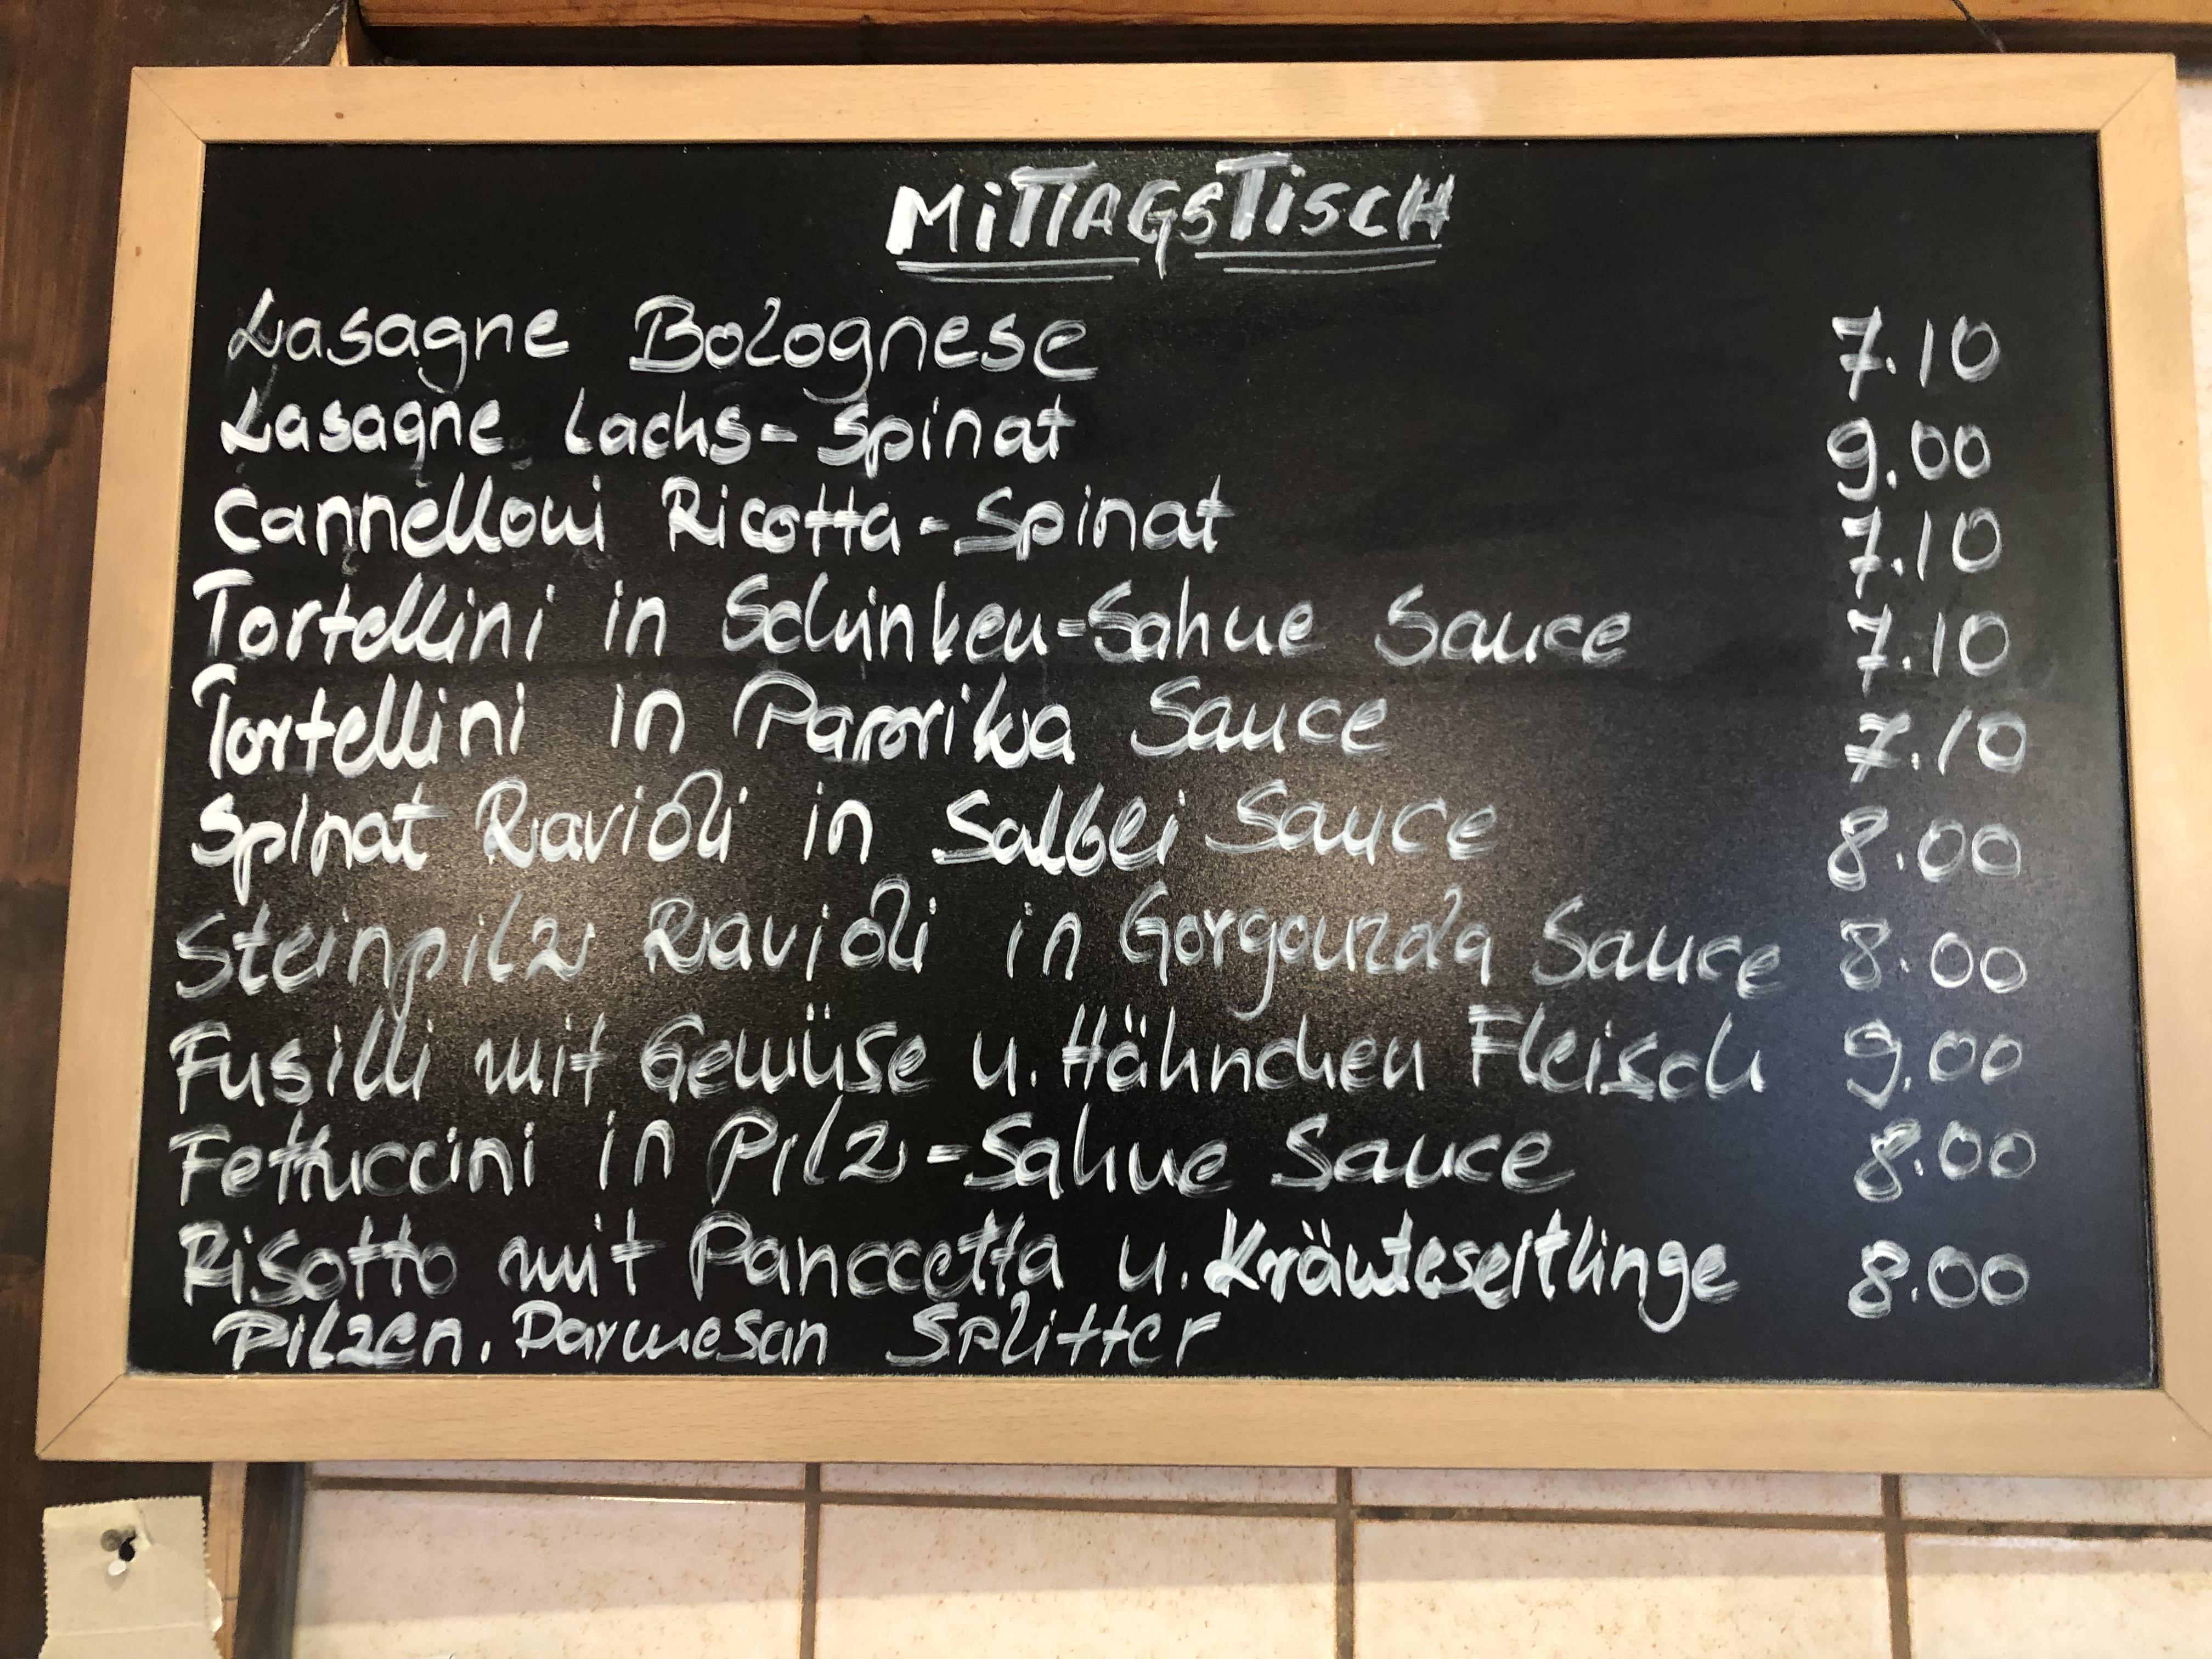 MiTTAGSTiSCH
Lasagne Bolognese 7.10
Lasagne Lachs-Spinat 9.00
Cannelloni Ricotta-Spinat 7.10
Tortellini in Schinken-Sahne Sauce 7.10
Tortellini in Paprika Sauce 7.10
Spinat Ravioli in Salbei Sauce 8.00
Steinpilz Ravioli in Gorgonzola Sauce 8.00
Fusilli mit Gemüse u. Hähnchen Fleisch 9.00
Fettuccini in Pilz-Sahne Sauce 8.00
Risotto mit Panccetta u. Kräuteseitlinge 8.00
Pilzen, Parmesan Splitter